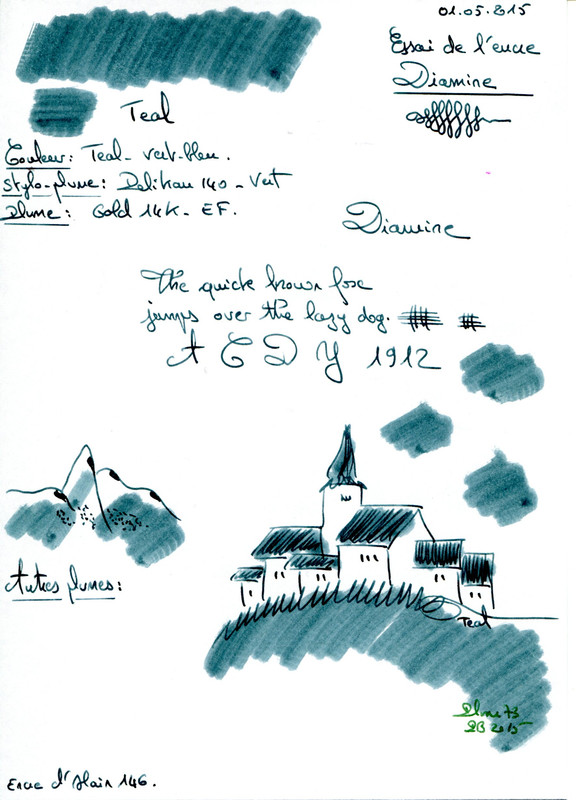 01.05.2015
Essai de l'encre
Diamine
Teal
Couleur: Teal - vert-bleu.
Stylo-plume: Pelikan 140 - Vert
Plume: Gold 14K - EF.
Diamine
The quick brown fox
jumps over the lazy dog.
A C D Y 1912
Autres plumes:
Teal
Plume 73
2015
Encre d'Alain 146.